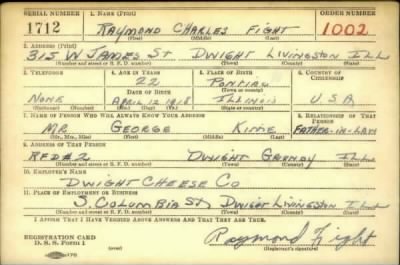 SERIAL NUMBER 1. NAME (Print) ORDER NUMBER
1712 RAYMOND CHARLES FIGHT 1002
(First) (Middle) (Last)
2. ADDRESS (Print)
315 W JAMES ST DWIGHT LIVINGSTON ILL
(Number and street or R. F. D. number) (Town) (County) (State)
3. TELEPHONE 4. AGE IN YEARS 5. PLACE OF BIRTH 6. COUNTRY OF CITIZENSHIP
22 PONTIAC
DATE OF BIRTH (Town or county)
NONE APRIL 12 1918 ILLINOIS U.S.A
(Exchange) (No.) (Mo.) (Day) (Yr.) (State or country)
7. NAME OF PERSON WHO WILL ALWAYS KNOW YOUR ADDRESS 8. RELATIONSHIP OF THAT PERSON
MR GEORGE KIME FATHER-IN-LAW
(Mr., Mrs., Miss) (First) (Middle) (Last)
9. ADDRESS OF THAT PERSON
RFD#2 DWIGHT GRUNDY ILL
(Number and street or R. F. D. number) (Town) (County) (State)
10. EMPLOYER'S NAME
DWIGHT CHEESE CO
11. PLACE OF EMPLOYMENT OR BUSINESS
S. COLOMBIA ST DWIGHT LIVINGSTON ILL
(Number and street or R. F. D. number) (Town) (County) (State)
I AFFIRM THAT I HAVE VERIFIED ABOVE ANSWERS AND THAT THEY ARE TRUE.
REGISTRATION CARD
D. S. S. Form 1 Raymond Fight
(Registrant's signature)